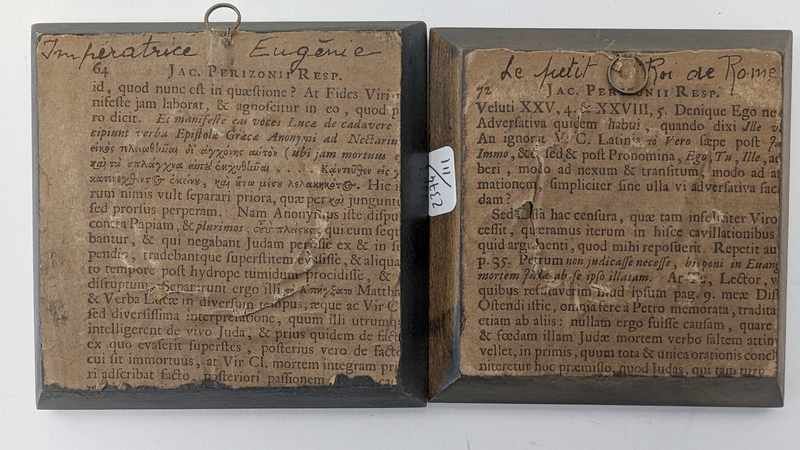 Impératrice Eugénie
64 JAC. PERIZONII RESP.
id, quod nunc est in quæstione? At Fides Viri
nifeste jam laborat, & agnoscitur in eo, quod
ro dicit. Et manifeste eai voces Lucæ de cadavere
cipiunt verba Epistolæ Græcæ Anonymi ad Nectarin
(ubi jam mortuum
Hic
rum nimis vult separari priora, quæ per καὶ jungunt
sed prorsus perperam. Nam Anonymus iste disput
contra Papiam, & plurimos qui eum sequ
bantur, & qui negabant Judam periisse ex & in su
pendio, tradebantque superstitem evasisse, & aliqua
to tempore post hydrope tumidum procidisse, &
disruptum. Separarunt ergo illi Matth
& Verba Lucæ in diversum tempus, æque ac Vir C
sed diversissima interpretatione, quum illi utrumque
intelligerent de vivo Juda, & prius quidem de facto
ex quo evaserit superstes, posterius vero de facto
cui sit immortuus, at Vir Cl. mortem integram pri
ri adscribat facto, posteriori passionem
Le petit Roi de Rome
72 JAC. PERIZONII RESP.
Veluti XXV, 4. & XXVIII, 5. Denique Ego ne
Adversativa quidem habui, quando dixi Ille v
An ignorat Vir C. Latinis τὸ Vero sæpe post
Immo, &c, sed & post Pronomina, Ego, Tu, Ille, ac
beri, modo ad nexum & transitum, modo ad af
mationem, simpliciter sine ulla vi adversativa
dam?
Sed ista hac censura, quæ tam insoliter Viro
cessit, quæramus iterum in hisce cavillationibus
quid argumenti, quod mihi reposuerit. Repetit au
p. 35. Petrum non judicasse necesse, bis poni in Evang
mortem Judæ ab se ipso illatam. At Tu, Lector, v
quibus refutaverim illud ipsum pag. 9. meæ Diss
Ostendi istic, omnia fere a Petro memorata, tradita
etiam ab aliis: nullam ergo fuisse causam, quare
& fœdam illam Judæ mortem verbo saltem attin
vellet, in primis, quum tota & unica orationis concl
niteretur hoc præmisso, quod Judas, qui tam
2374/111